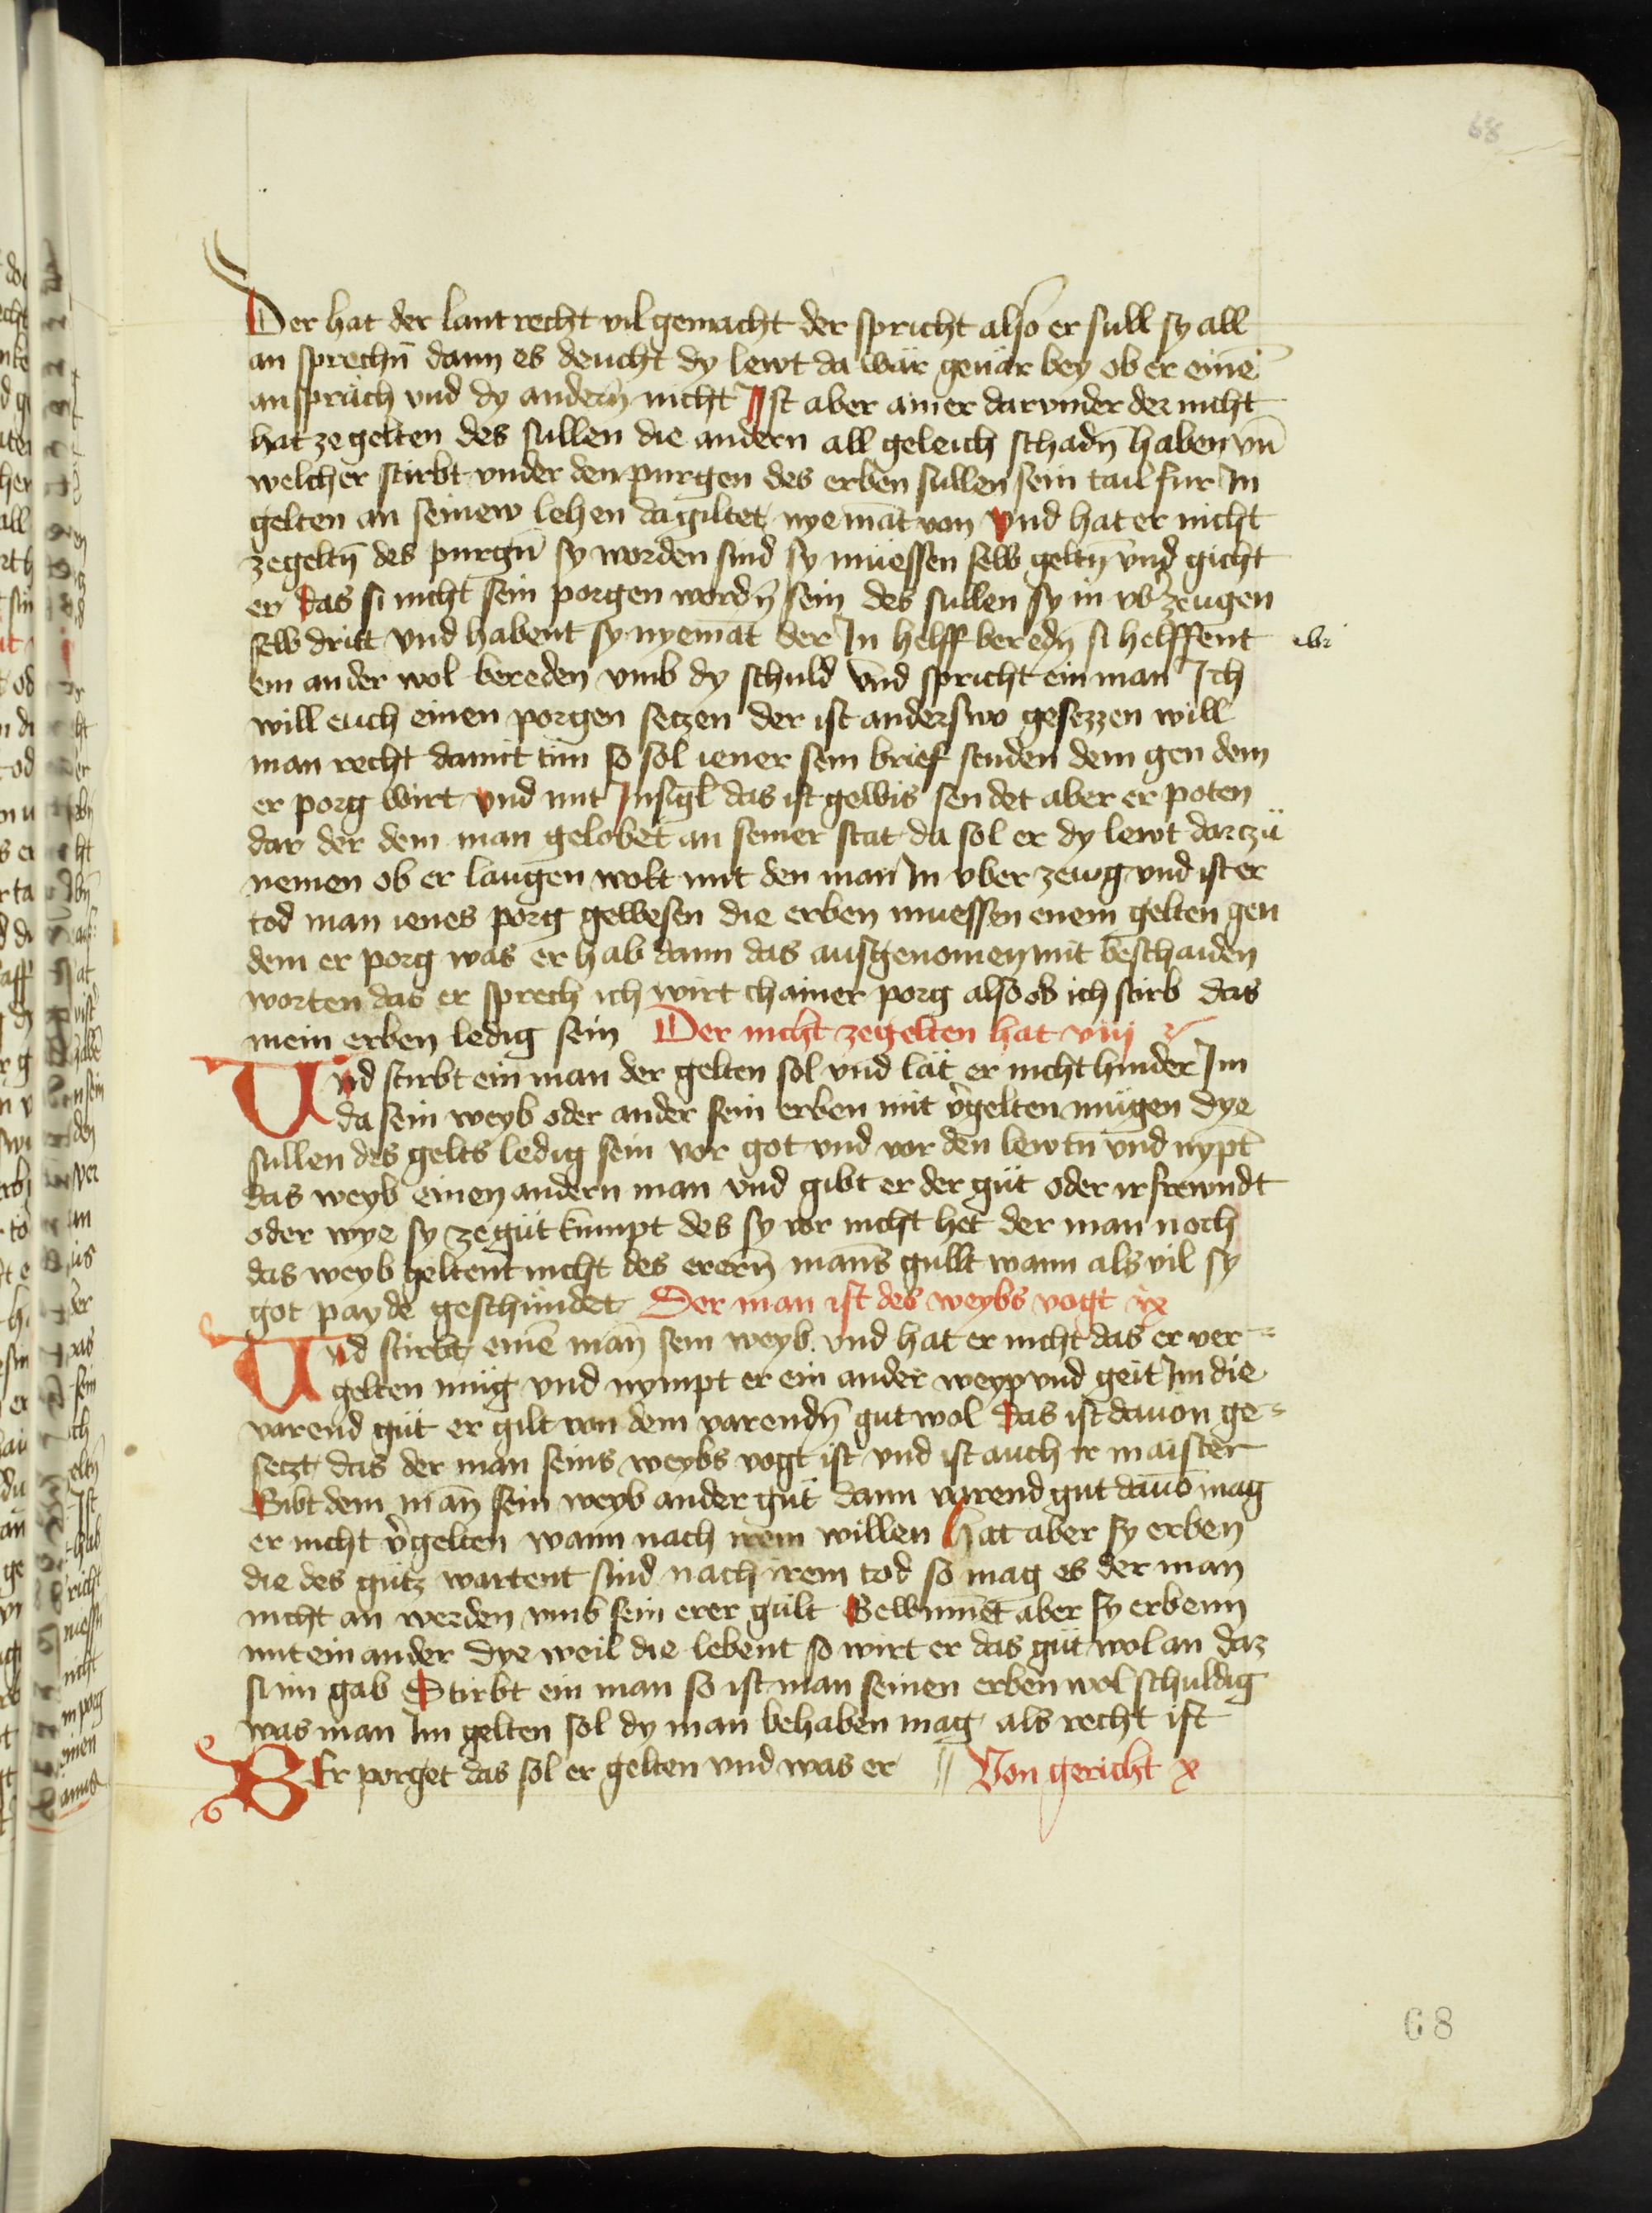 68
Der hat der lantrecht vil gemacht der spricht also er sull sy all
an sprechn̄ dann es deucht dy lewt da wär geuär bey ob er einē
anspräch vnd dy andern̄ nicht Ist aber ainer darvnder der nicht
hat ze gelten des sullen die andern all geleich schadn̄ haben vn̄
welcher stirbt vnder den purgen des erben sullen sein tail fur In
gelten an seinew lehen da giltet nyemāt von vnd hat er nicht
zegeltn̄ des purgn̄ sy worden sind sy müessen selb geltn̄ vnd gicht
er das si nicht sein porgen wordn̄ sein des sullen sy in vb̄zeugen
selb dritt vnd habent sy nyemāt der In helff beredn̄ si helffent
ein ander wol bereden vmb dy schuld vnd spricht ein man Ich
will euch einen porgen setzen der ist anderswo gesezzen will
man recht damit tun so sol iener sein brief senden dem gen dem
er porg wirt vnd mit Insigl das ist gewis sendet aber er poten
dar der dem man gelobet an seiner stat da sol er dy lewt darczü
nemen ob er laugen wolt mit den man In vber zewg vnd ist er
tod man ienes porg gewesen die erben muessen enem gelten gen
dem er porg was er hab dann das ausgenomen mit beschaiden
worten das er sprech ich wirt chainer porg also ob ich stirb das
mein erben ledig sein Der nicht zegelten hat viij
Vnd stirbt ein man der gelten sol vnd lät er nicht hinder Im
da sein weyb oder ander sein erben mit v̄gelten mügen dye
sullen des gelts ledig sein vor got vnd vor den lewtn̄ vnd nypt
das weyb einen andern man vnd gibt er der güt oder ir frewndt
oder wye sy ze güt kumpt des sy vor nicht het der man noch
das weyb geltent nicht des erern̄ mans gullt wann als vil sy
got payde geschundet Der man ist des weybs vogt ix
Vnd stirbt einē man̄ sein weyb. vnd hat er nicht das er ver=
gelten müg vnd nympt er ein ander weyp vnd geit Im die
varend güt er gilt von dem varendn̄ gut wol das ist dauon ge=
setzt das der man seins weybs vogt ist vnd ist auch ir maister
Gibt dem man̄ sein weyb ander güt dann varend gut dauō mag
er nicht v̄gelten wann nach irem willen hat aber sy erben
die des gütz wartent sind nach irem tod so mag es der man
nicht an werden vmb sein erer gült Gewinnet aber sy erbenn
mit einander dye weil die lebent so wirt er das güt wol an daz
si im gab Stirbt ein man so ist man seinen erben wol schuldig
was man Im gelten sol dy man behaben mag als recht ist
Er porget das sol er gelten vnd was er // Von gericht x
68